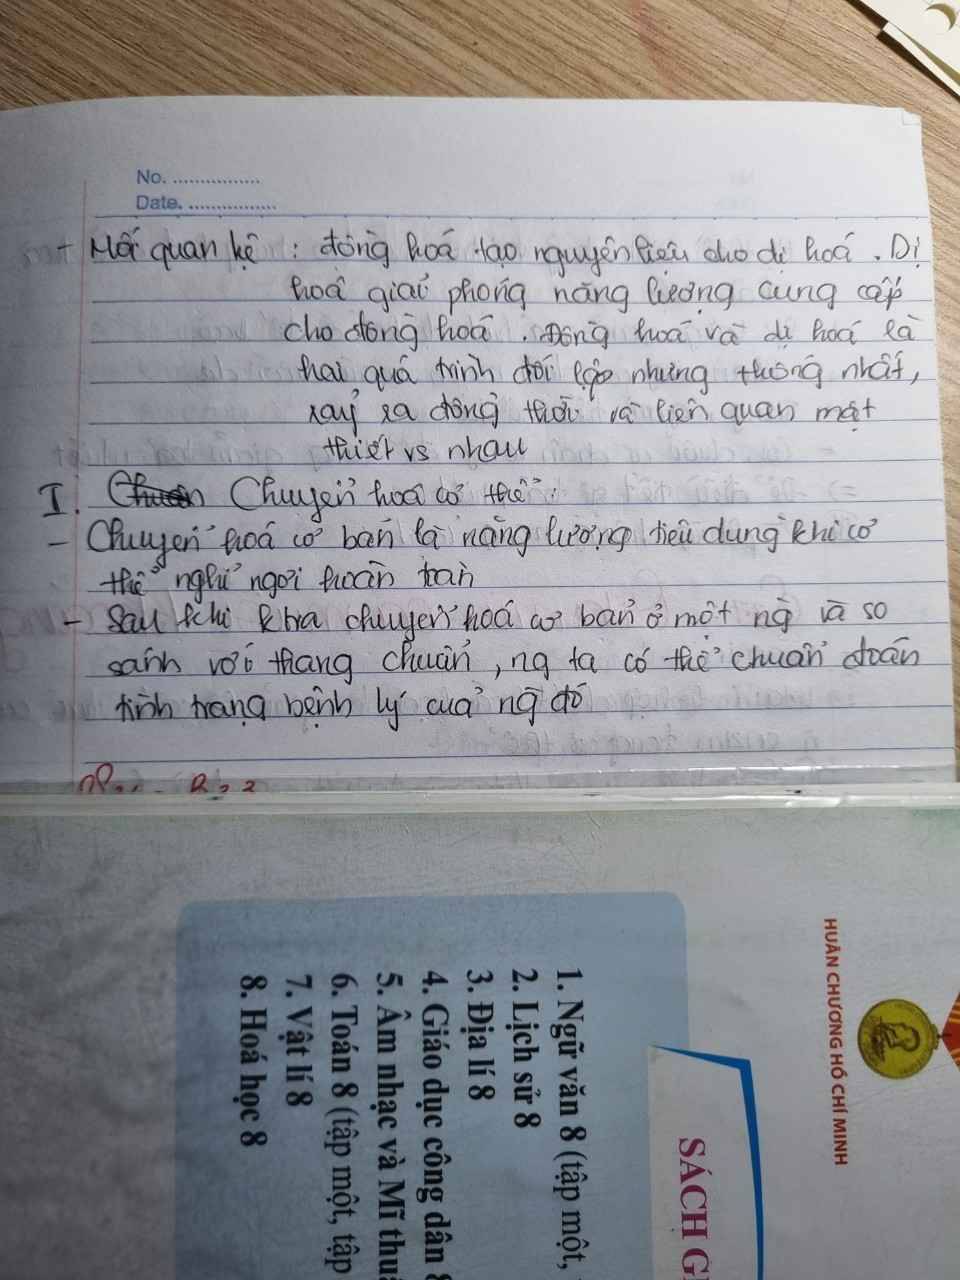 No. ................
Date. ................
- Mối quan hệ : đồng hoá tạo nguyên liệu cho dị hoá . Dị
hoá giải phóng năng lượng cung cấp
cho đồng hoá . Đồng hoá và dị hoá là
hai quá trình đối lập nhưng thống nhất,
xảy ra đồng thời và liên quan mật
thiết vs nhau
I. Chuyển hoá cơ thể :
- Chuyển hoá cơ bản là năng lượng tiêu dùng khi cơ
thể nghỉ ngơi hoàn toàn
- Sau khi ktra chuyển hoá cơ bản ở một ng và so
sánh với thang chuẩn , ng ta có thể chuẩn đoán
tình trạng bệnh lý của ng đó
HUÂN CHƯƠNG HỒ CHÍ MINH
SÁCH
1. Ngữ văn 8 (tập một,
2. Lịch sử 8
3. Địa lí 8
4. Giáo dục công dân 8
5. Âm nhạc và Mĩ
6. Toán 8 (tập một, tập
7. Vật lí 8
8. Hoá học 8